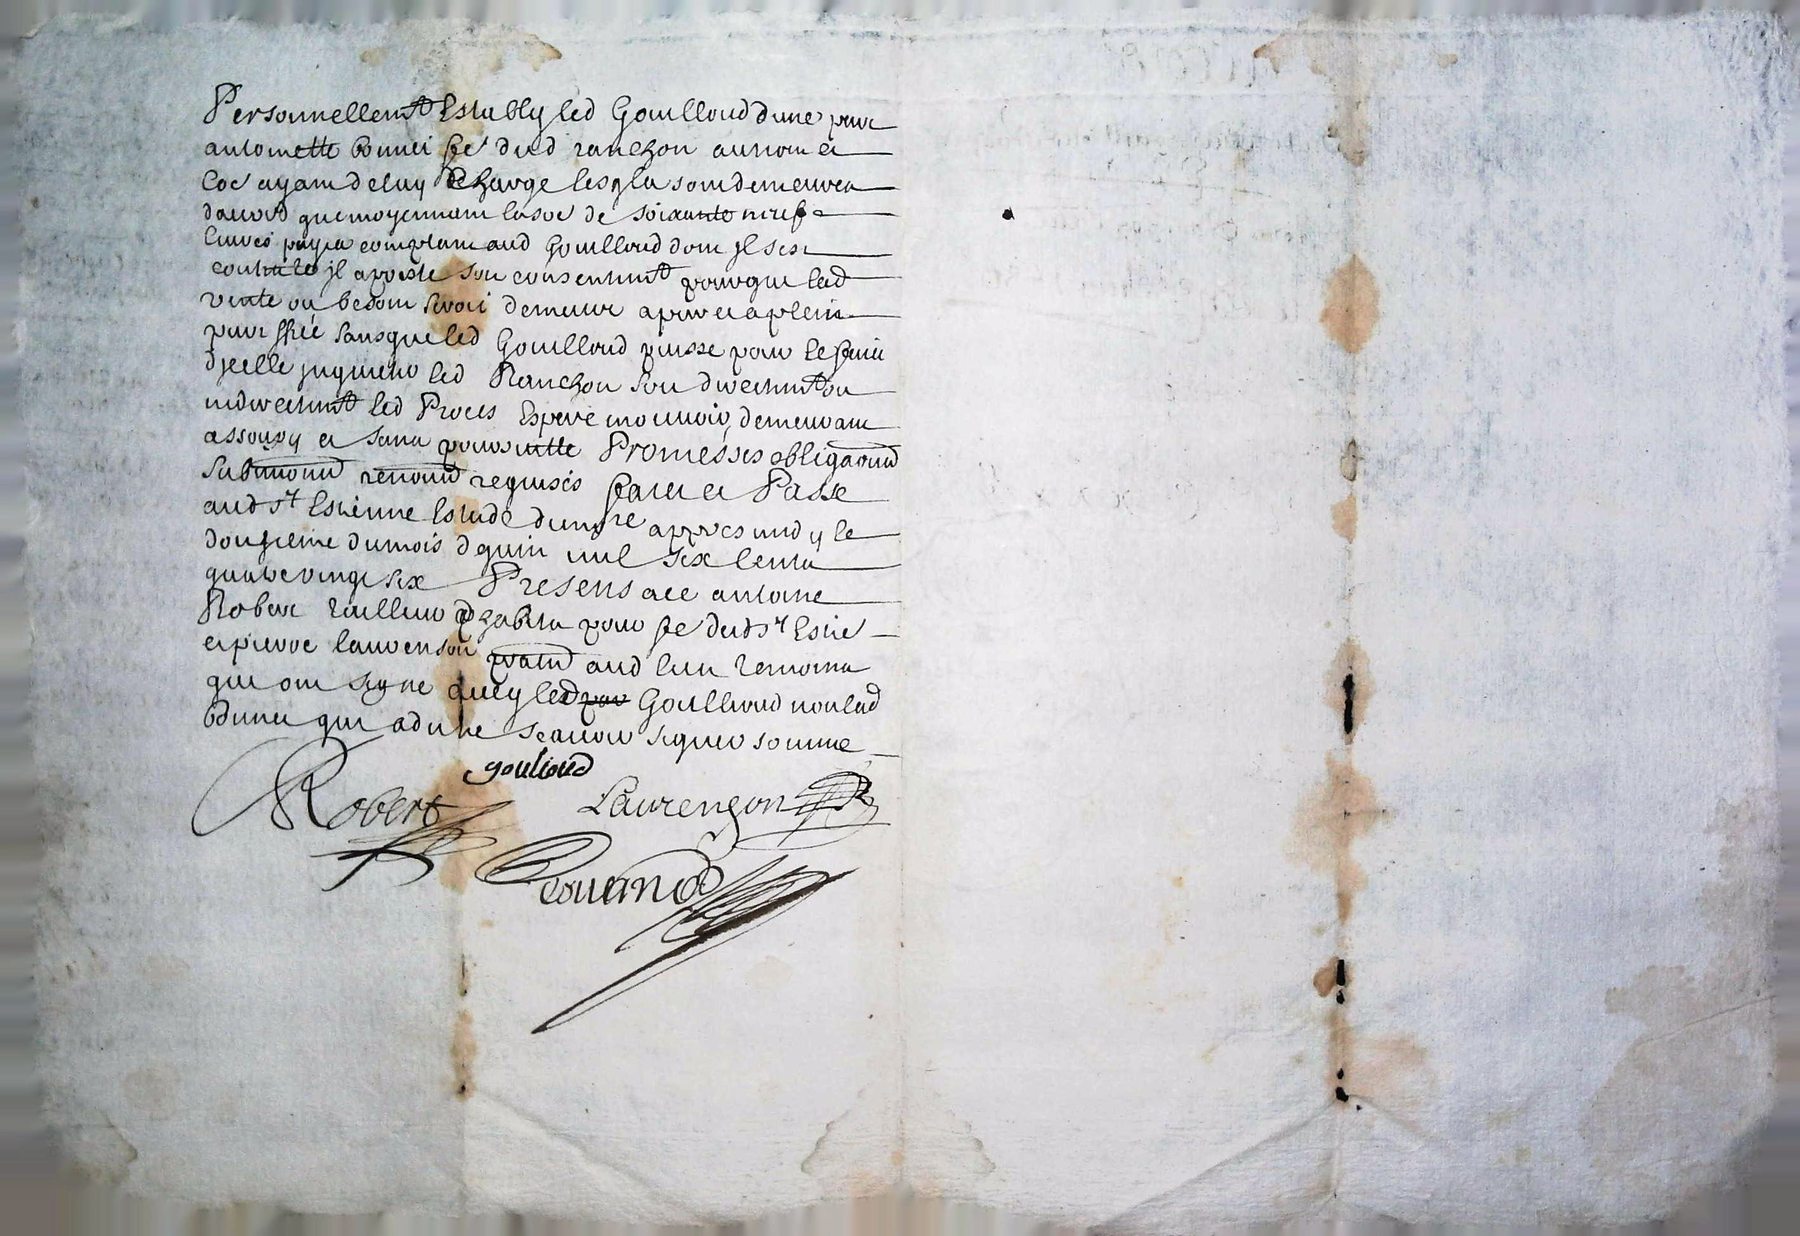 Personnellemt Estably led Gouilloud dune part
antoinette Bonnet fe dud ranchon au nom et
coe ayant deluy charge lesqls sont demeures
daccord que moyennant la soe de soixante neuf
livres payes comptant aud Gouilloud dont Il sest
contente il appreste son consentmt pour que lad
vente ou besoin seroit demeure apures a plein
purifiée sans que led Gouilloud puisse pour le
dycelle inquieter led Ranchon son directemt ou
indirectemt led Proces Espere mouvoir, demeurant
assoupy et sans poursuitte Promesses obligaons
Submions renons requises fait et Passe
aud st Estienne Estude dunore appres midy le
douzieme du mois de juin mil six cents
quatre vingt six Presens Me antoine
Robert tailleur dhabits pour fe dud st Estie
et pierre laurenson praten aud lieu temoins
qui ont signe avecq led Gouilloud non lad
Bonnet qui a dit ne scavoir signer somme
goulioud
Robert
Laurenson